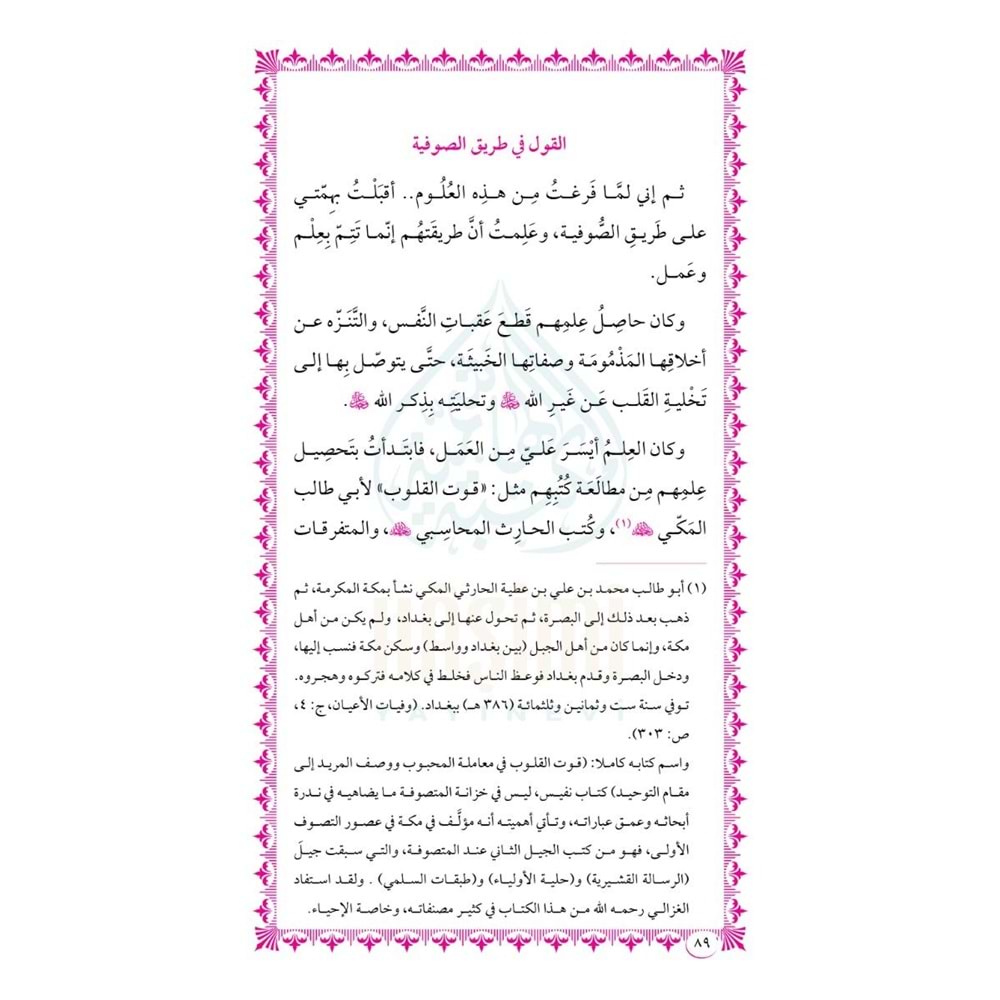 القول في طريق الصوفية
ثم إني لمَّا فَرغتُ مِن هذِه العُلُوم.. أقبَلْتُ بِهمّتي
على طَريقِ الصُّوفية، وعَلِمتُ أنَّ طريقَتهُم إنّما تَتِمّ بِعِلْم
وعَمل.
وكان حاصِلُ عِلمِهم قَطعَ عَقباتِ النَّفس، والتَّنَزّه عن
أخلاقِها المَذْمُومَة وصفاتِها الخَبيثَة، حتَّى يتوصّل بِها إلى
تَخْليةِ القَلب عَن غَيرِ الله وتحليَتِه بِذِكر الله .
وكان العِلمُ أيْسَرَ عَليّ مِن العَمَل، فابتَدأتُ بتَحصِيل
عِلمِهم مِن مطالَعَة كُتُبِهِم مثل: «قوت القلوب» لأبي طالب
المَكّي (١)، وكُتب الحارِث المحاسِبي ، والمتفرقات
(١) أبو طالب محمد بن علي بن عطية الحارثي المكي نشأ بمكة المكرمة، ثم
ذهب بعد ذلك إلى البصرة، ثم تحول عنها إلى بغداد، ولم يكن من أهل
مكة، وإنما كان من أهل الجبل (بين بغداد وواسط) وسكن مكة فنسب إليها،
ودخل البصرة وقدم بغداد فوعظ الناس فخلط في كلامه فتركوه وهجروه.
توفي سنة ست وثمانين وثلثمائة (٣٨٦ هـ) ببغداد. (وفيات الأعيان، ج: ٤،
ص: ٣٠٣).
واسم كتابه كاملا: (قوت القلوب في معاملة المحبوب ووصف المريد إلى
مقام التوحيد) كتاب نفيس، ليس في خزانة المتصوفة ما يضاهيه في ندرة
أبحاثه وعمق عباراته، وتأتي أهميته أنه مؤلَّف في مكة في عصور التصوف
الأولى، فهو من كتب الجيل الثاني عند المتصوفة، والتي سبقت جيلَ
(الرسالة القشيرية) و(حلية الأولياء) و(طبقات السلمي) . ولقد استفاد
الغزالي رحمه الله من هذا الكتاب في كثير مصنفاته، وخاصة الإحياء.
٨٩